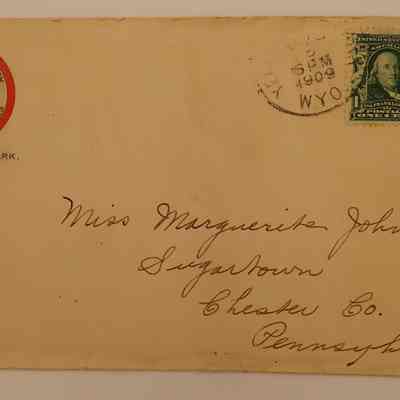 ARK.
5 PM
1909
WYO
Miss Marguerite John
Sugartown
Chester Co.
Pennsyl